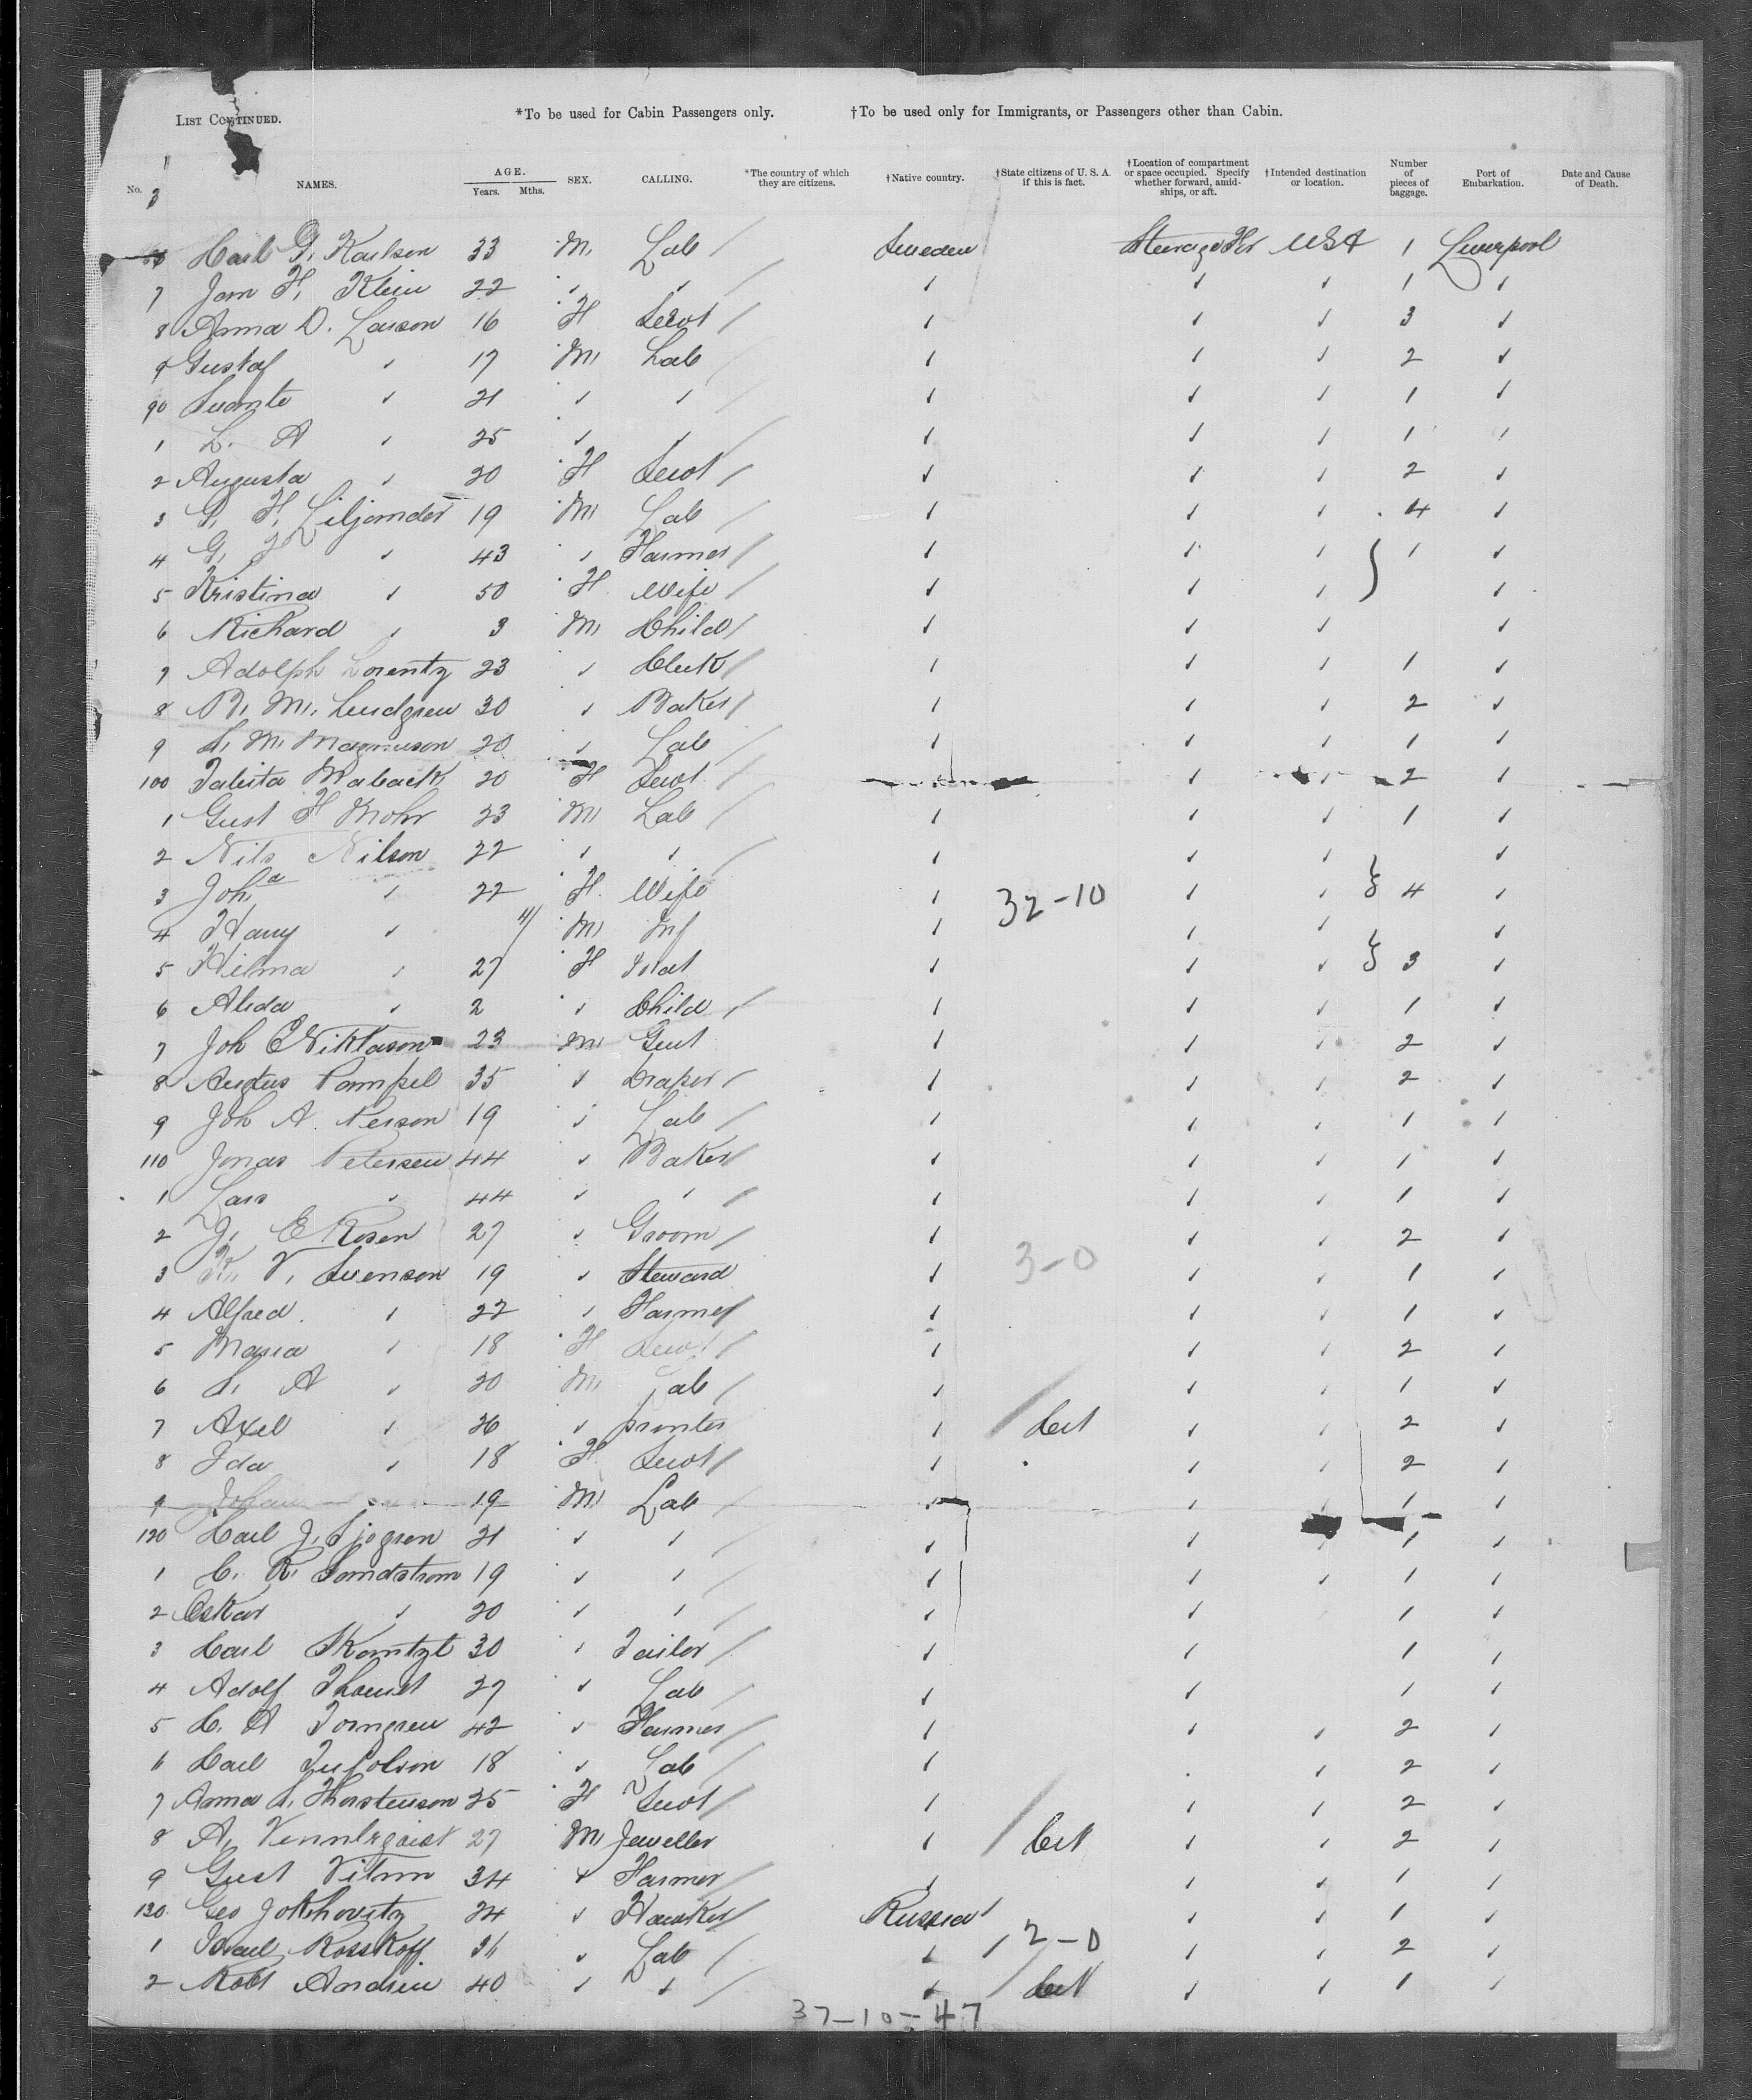 LIST CONTINUED. *To be used for Cabin Passengers only. †To be used only for Immigrants, or Passengers other than Cabin.
No. NAMES. AGE. Years. Mths. SEX. CALLING. *The country of which they are citizens. †Native country. †State citizens of U. S. A. if this is fact. †Location of compartment or space occupied. Specify whether forward, amidships, or aft. †Intended destination or location. Number of pieces of baggage. Port of Embarkation. Date and Cause of Death.
Carl G. Karlson 33 M. Lab / Sweden Steerage USA 1 Liverpool
7 Jam F. Klein 22 " " / " " " 1 "
8 Anna D. Larson 16 F Servt / " " " 3 "
9 Gustaf " 17 M. Lab / " " " 2 "
90 Suante " 21 " " / " " " 1 "
1 L. A " 25 " " / " " " 1 "
2 Augusta " 20 F Servt / " " " 2 "
3 G. F. Liljander 19 M Lab / " " " 4 "
4 G. F " 43 " Farmer / " " " } 1 "
5 Kristina " 50 F. Wife / " " " "
6 Richard " 3 M. Child / " " " "
7 Adolph Lorentz 23 " Clerk / " " " 1 "
8 M. Lundgren 30 " Baker / " " " 2 "
9 S. M. Magnuson 20 " Lab / " " " 1 "
100 20 F Servt / " " 2 "
1 Gust F Mohr 23 M Lab / " " " 1 "
2 Nils Nilson 22 " " / " " " "
3 Joha " 22 F. Wife " 32-10 " " } 4 "
4 Harry " 11/ M Inf " " " "
5 Hilma " 27 F " " " } 3 "
6 Alida " 2 " Child / " " " 1 "
7 Joh C Niklason 23 M Gent " " " 2 "
8 Pampel 35 " Draper / " " " 2 "
9 Joh A. Person 19 " Lab / " " " 1 "
110 Jonas Petersen 44 " Baker / " " " 1 "
1 Lars " 44 " " / " " " 1 "
2 J. E Rosen 27 " Groom / " " " 2 "
3 K. V. Svenson 19 " Steward " 3-0 " " 1 "
4 Alfred " 22 " Farmer / " " " 1 "
5 Maria " 18 F Servt / " " " 2 "
6 S. A " 30 M. Lab / " " " 1 "
7 Axel " 26 " printer " / " " 2 "
8 Ida " 18 F Servt / " " " 2 "
9 Johan " 19 M Lab / " " " 1 "
120 Carl J. Sjogren 21 " " / " " 1 "
1 C. R. Sandstrom 19 " " / " " " 1 "
2 Oskar " 20 " " / " " 1 "
3 Carl 30 " Tailor / " " 1 "
4 Adolf 27 " Lab / " " 1 "
5 C. A Torngren 42 " Farmer / " " " 2 "
6 Carl 18 " Lab / " " 2 "
7 Anna S. Thorstenson 25 F Servt / " " " 2 "
8 A. 27 M Jeweller " / " " 2 "
9 Gust 34 " Farmer / " " " 1 "
130 Geo 24 " Hawker / Russia " " 1 "
1 Israel Rosskoff " Lab / " / 2-0 " " 2 "
2 Robt 40 " " / " / " " 1 "
37-10=47